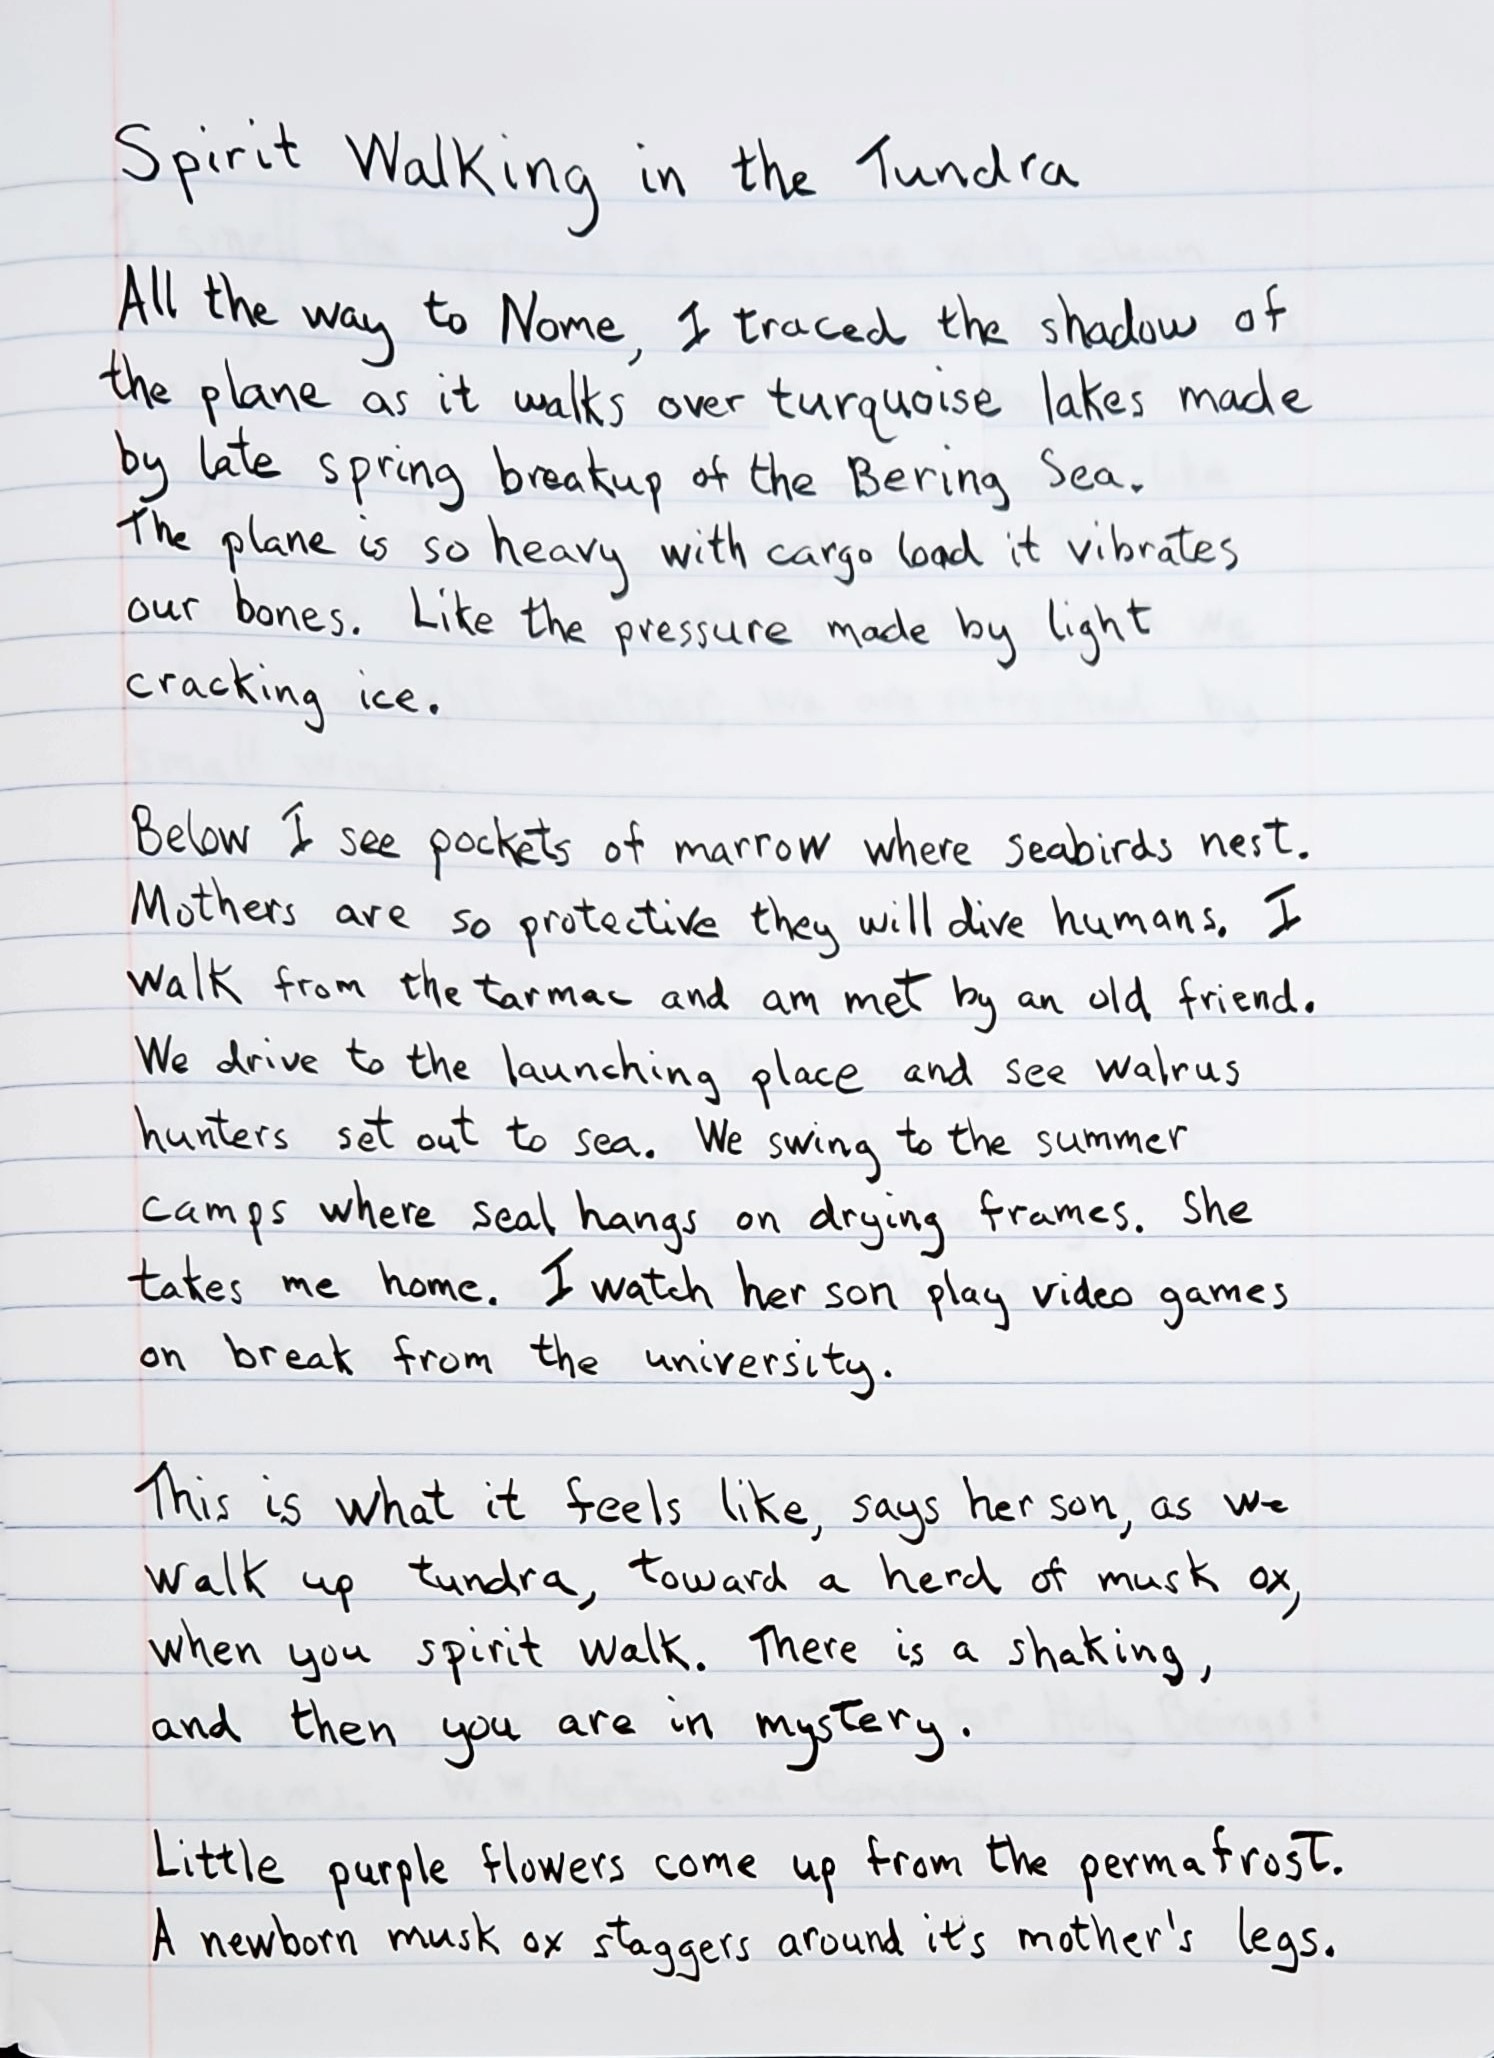 Spirit Walking in the Tundra
All the way to Nome, I traced the shadow of
the plane as it walks over turquoise lakes made
by late spring breakup of the Bering Sea.
The plane is so heavy with cargo load it vibrates
our bones. Like the pressure made by light
cracking ice.
Below I see pockets of marrow where seabirds nest.
Mothers are so protective they will dive humans. I
walk from the tarmac and am met by an old friend.
We drive to the launching place and see walrus
hunters set out to sea. We swing to the summer
camps where seal hangs on drying frames. She
takes me home. I watch her son play video games
on break from the university.
This is what it feels like, says her son, as we
walk up tundra, toward a herd of musk ox,
when you spirit walk. There is a shaking,
and then you are in mystery.
Little purple flowers come up from the permafrost.
A newborn musk ox staggers around it's mother's legs.